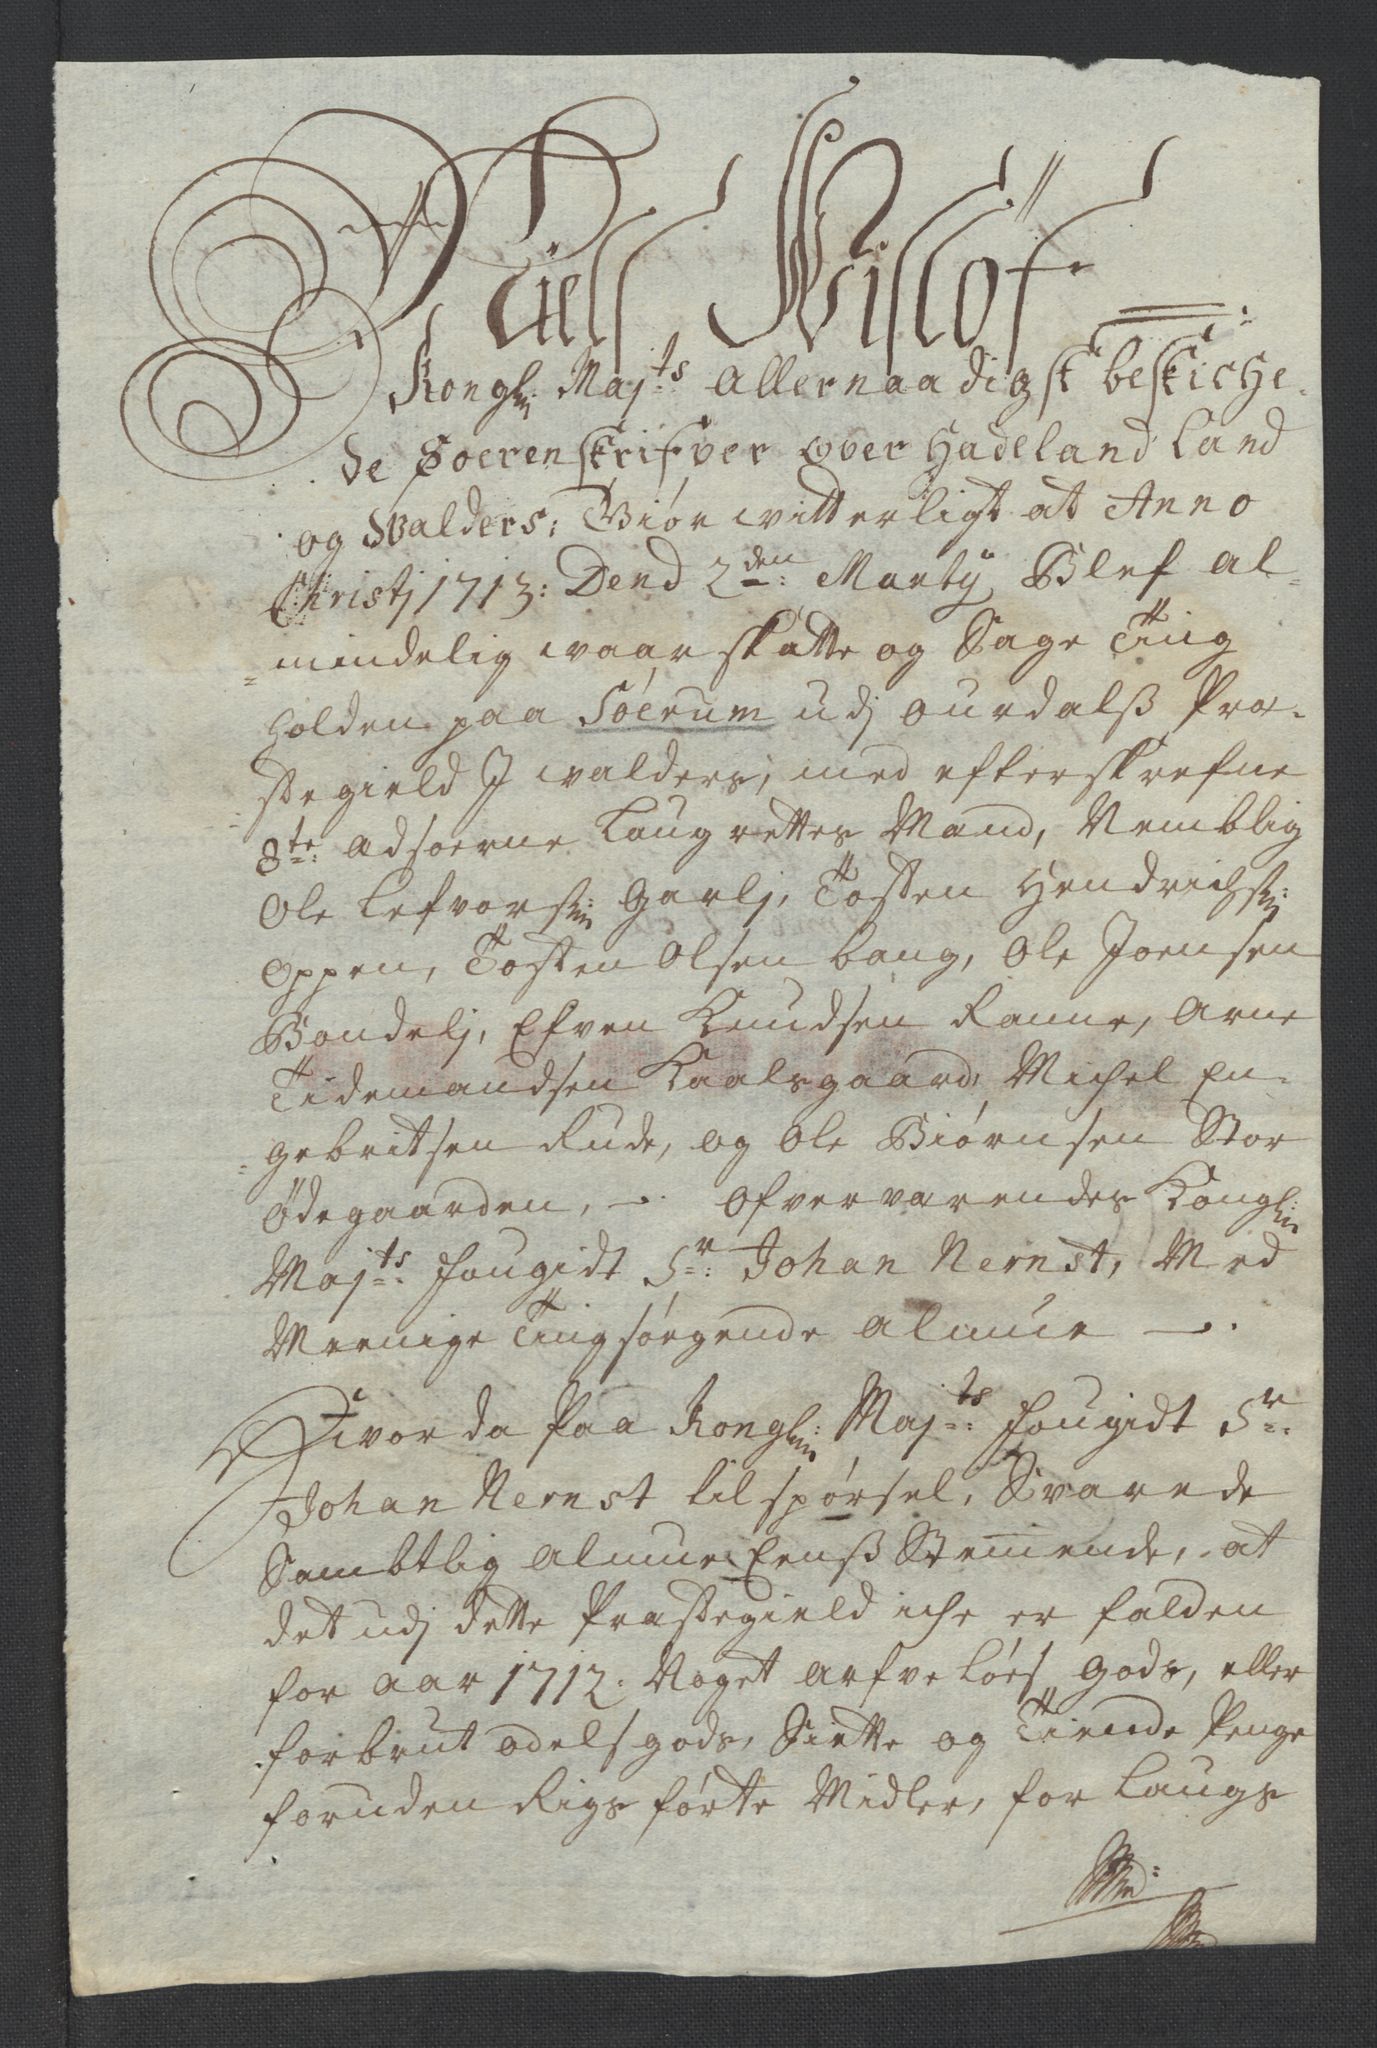 Niels Wislöf
Kongl: Maj:ts allernaadigst beskiche-
de Soerenskrifver over Hadeland Land
og Walders; Giör witterligt at Anno
Christj 1713: Dend 2den: Martij Blef al-
mindelig waar skatte og Sage Ting
holden paa Söerum udj ourdalß Præ-
stegield J walders, med efterskrefne
8te: adsoerne Laugrettes Mænd, Nemblig
Ole Lefvorsen: Garlj, Tosten Hendrichsen:
Oppen, Tosten Olsen bang, Ole Joensen
Bondelj, Efven Knudsen Ranne, Arne
Tidemandsen Kaalsgaard, Michel En-
gebritsen Rude, og Ole Biörnsen Stor
Ödegaarden, — Ofververendes Kongl:
Maj:ts fougidt Sr: Johan Nernst, Med
Meenige Tingsögende almue —
Hvor da Paa Kongl: Maj:ts fougidt Sr:
Johan Nernst tilspörsel, Svarede
Sambtlig almue Eenß Stemmende, at
det udj dette Præstegield iche er falden
for aar 1712. Noget arfvelöes gods, eller
forbrut odelsgods, Siette og Tiende Penge
foruden Rigs förte Midler, for Laugs